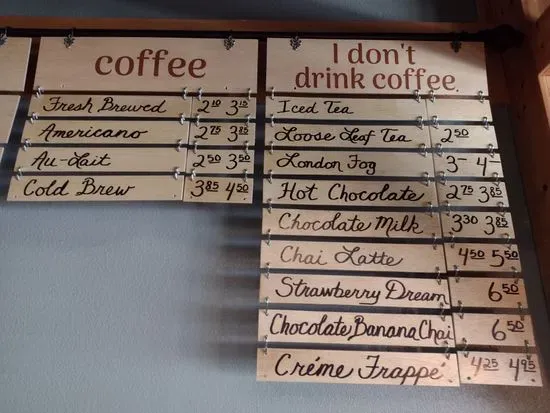 coffee
Fresh Brewed 2 10 3 15
Americano 2 75 3 85
Au-Lait 2 50 3 50
Cold Brew 3 85 4 50
I don't
drink coffee
Iced Tea
Loose Leaf Tea 2 50
London Fog 3- 4-
Hot Chocolate 2 75 3 85
Chocolate Milk 3 30 3 85
Chai Latte 4 50 5 50
Strawberry Dream 6 50
Chocolate Banana Chai 6 50
Créme Frappé 4 25 4 95